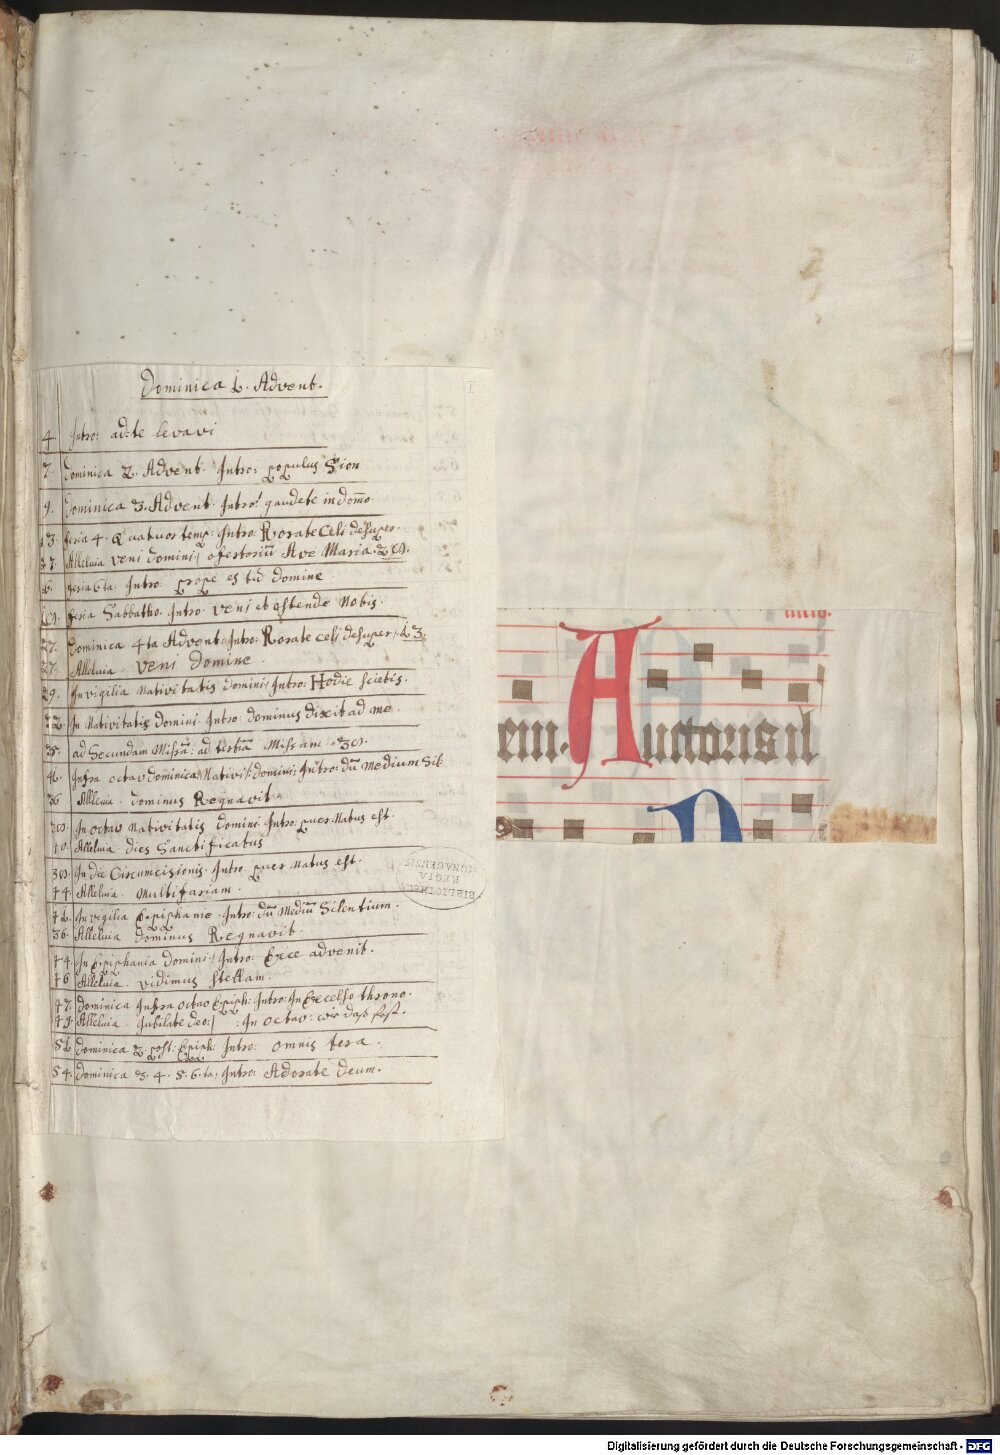 Dominica 1. Advent.
I
4. Intro: ad te levavi
7. Dominica 2. Advent. Intro: populus Sion
9. Dominica 3. Advent. Intro: gaudete in domō
13. feria 4. Quatuor temp: Intro: Rorate Celi desuper.
27. Alleluia veni domini, ofertoriū Ave Maria.
feria 6ta. Intro prope es tū domine
feria Sabbatho. Intro: veni et ostende nobis.
27. Dominica 4ta Advent: Intro: Rorate celi desuper, 13.
27. Alleluia. Veni Domine.
29. In vigilia Nativitatis Domini, Intro: Hodie scietis.
32. In Nativitatis Domini. Intro Dominus dixit ad me.
35. ad Secundam Missā: ad tertiā Missam. 39.
Infra octav dominica Nativit: domini, Intro: dū Medium Sil:
36 Alleluia. Dominus Regnavit.
39. In octav Nativitatis Domini Intro: puer Natus est.
40. Alleluia dies Sanctificatus
39. In die Circumcisionis. Intro puer Natus est.
44. Alleluia. Multifariam.
In vigilia Epiphaniæ. Intro: dū Mediū Silentium.
36. Alleluia Dominus Regnavit.
44. In Epiphania Domini, Intro: Ecce advenit.
46 Alleluia. vidimus stellam.
47. Dominica Infra octav Epiph: Intro: In Excelso throno.
49. Alleluia Jubilate deo: : In octav: wie daß fest.
51 Dominica 2 post: Epiph: Intro: omnis tera.
54. Dominica 3. 4. 5. 6.ta, Intro: Adorate Deum.
BIBLIOTHECA
REGIA
MONACENSIS
em. Auctoris il
Digitalisierung gefördert durch die Deutsche Forschungsgemeinschaft - DFG